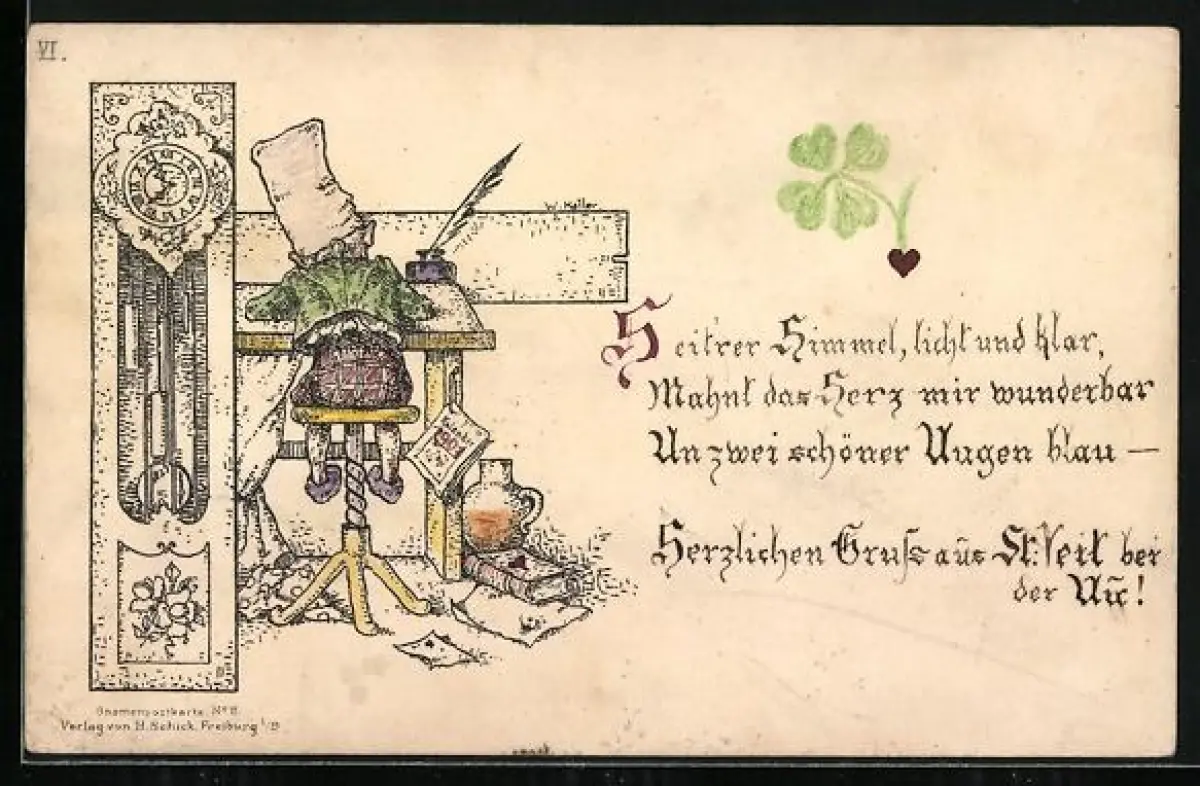 VI.
W. Keller
Heit'rer Himmel, licht und klar,
Mahnt das Herz mir wunderbar
An zwei schöner Augen blau —
Herzlichen Gruss aus St. Veit bei
der Au!
Gnomenpostkarte. No 8.
Verlag von H. Schick, Freiburg i/B